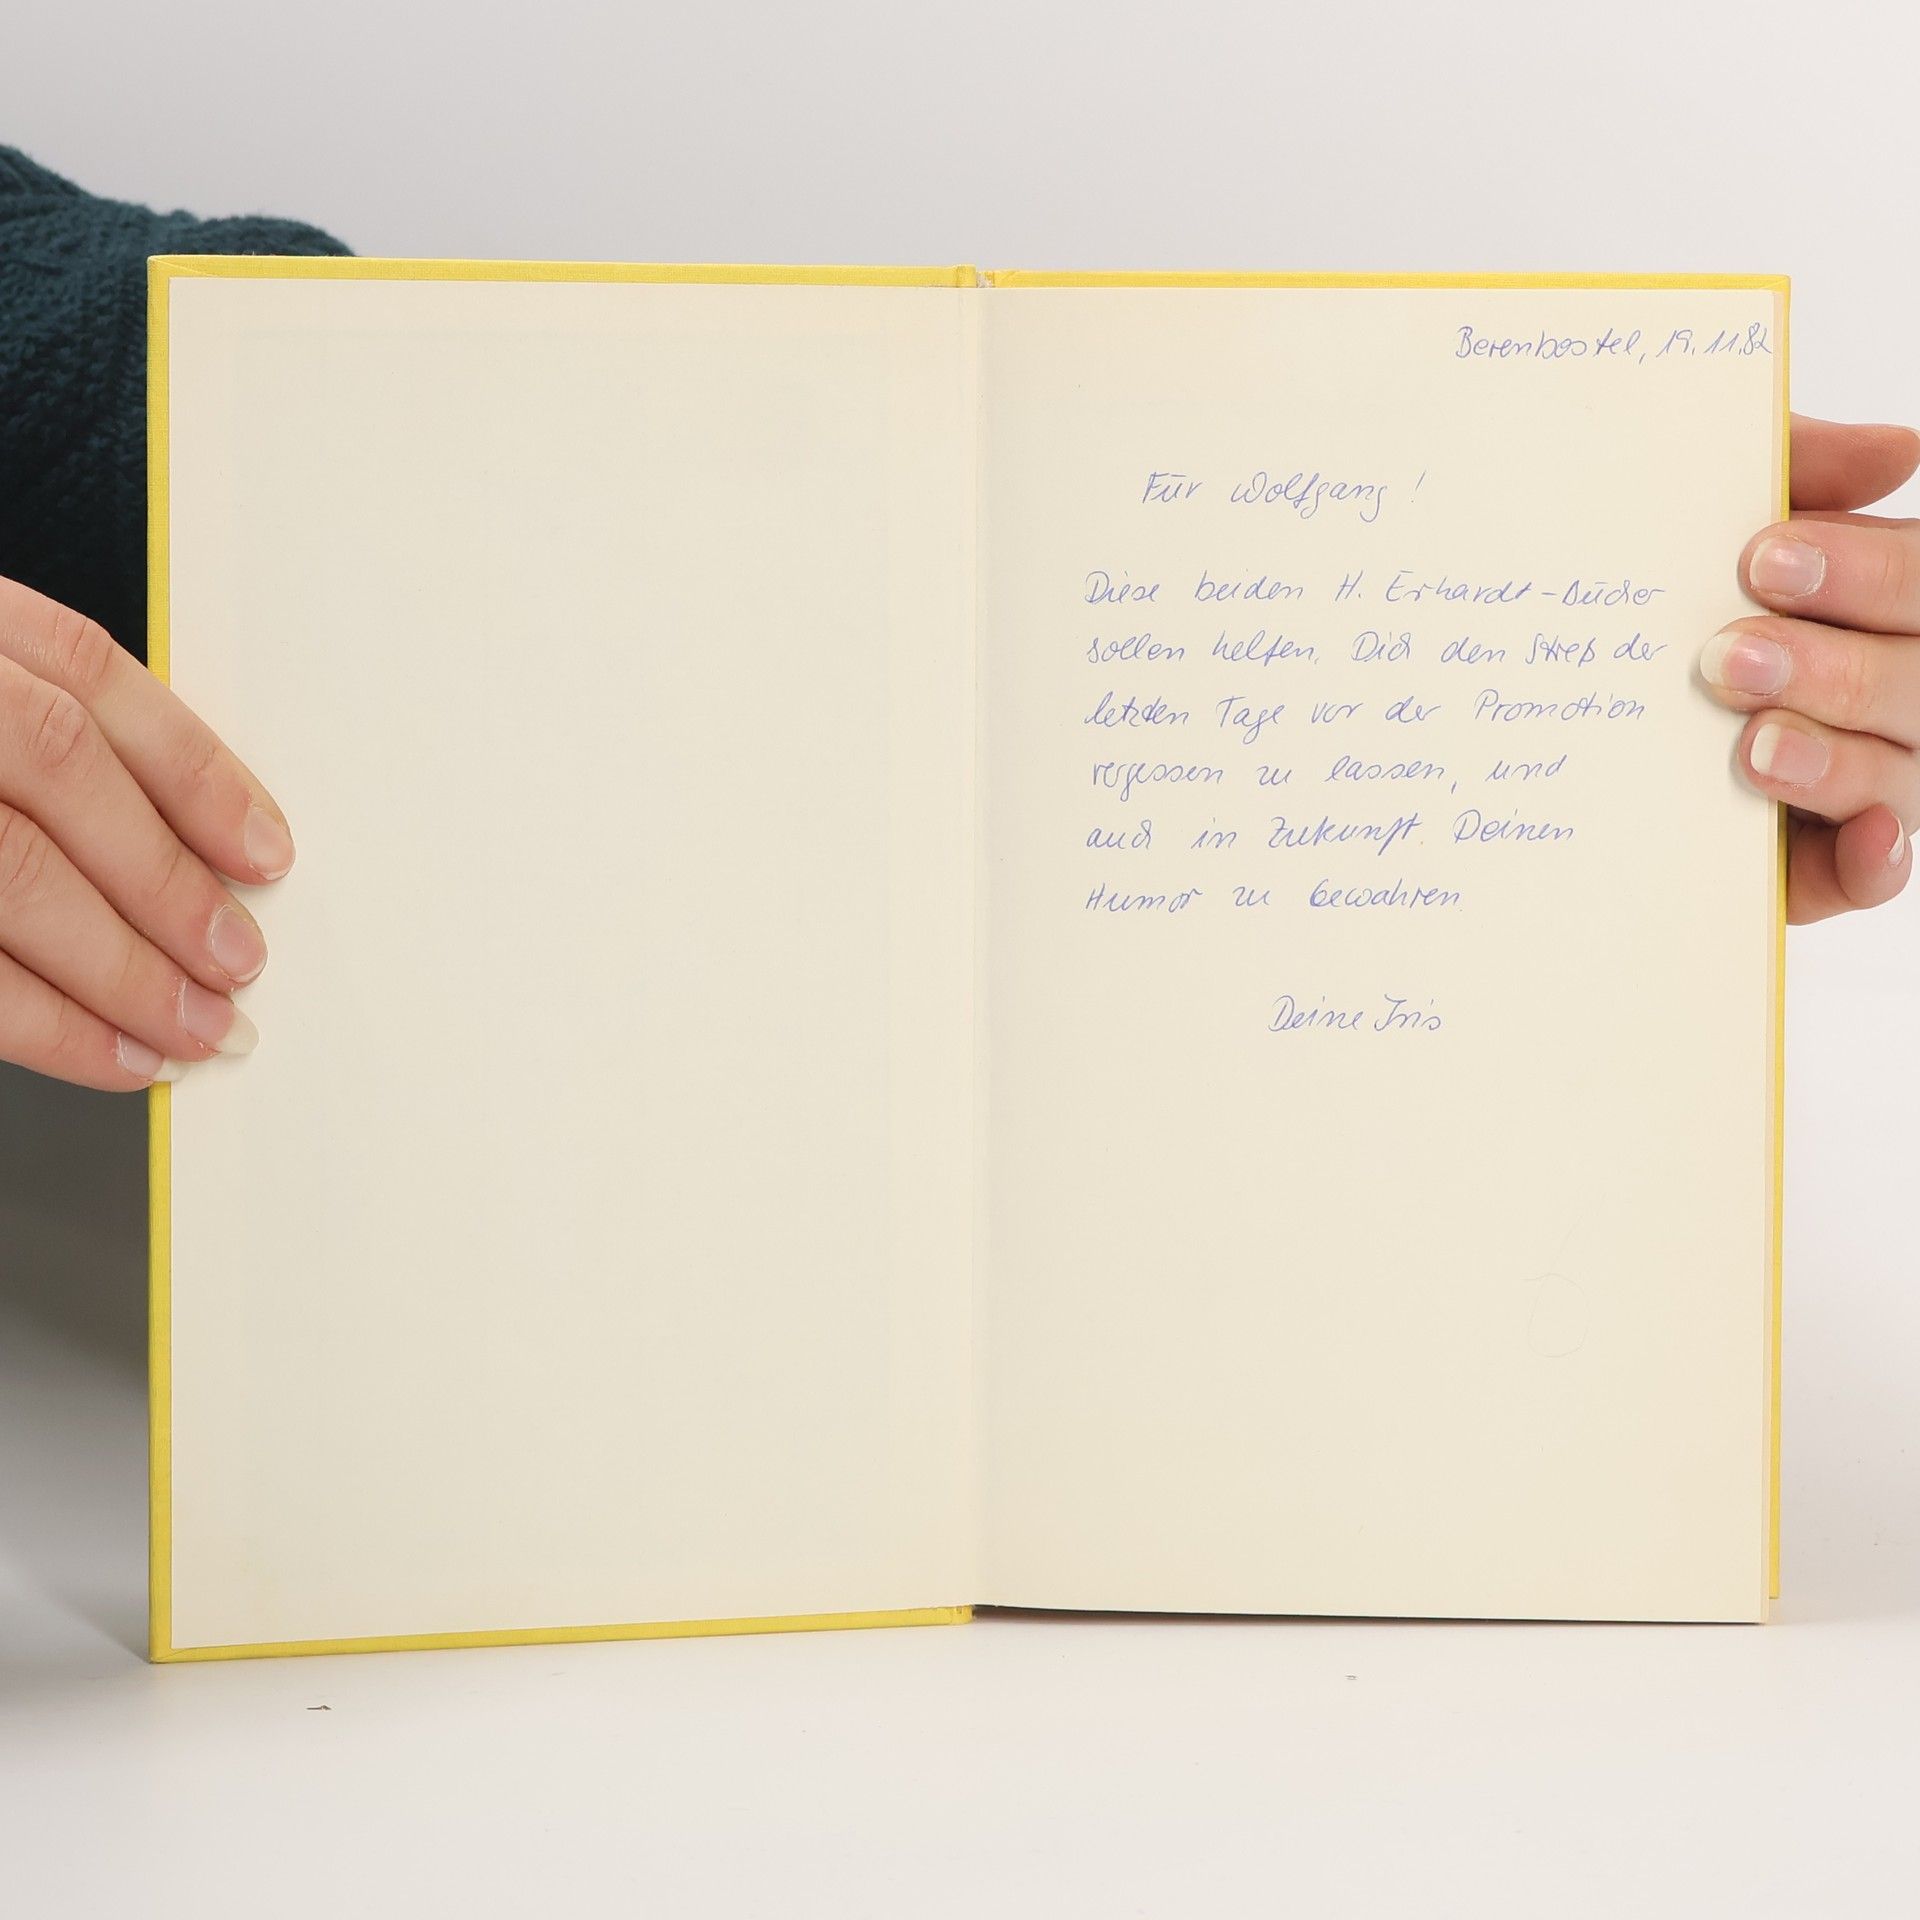 Berenbostel, 19.11.82
Für Wolfgang!
Diese beiden H. Erhardt-Bücher
sollen helfen, Dich den Streß der
letzten Tage vor der Promotion
vergessen zu lassen, und
auch in Zukunft Deinen
Humor zu bewahren.
Deine Iris